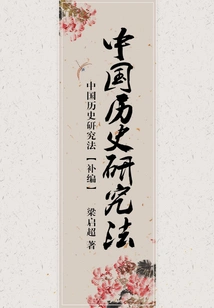 中国历史研究法
中国历史研究法【补编】
梁启超 著